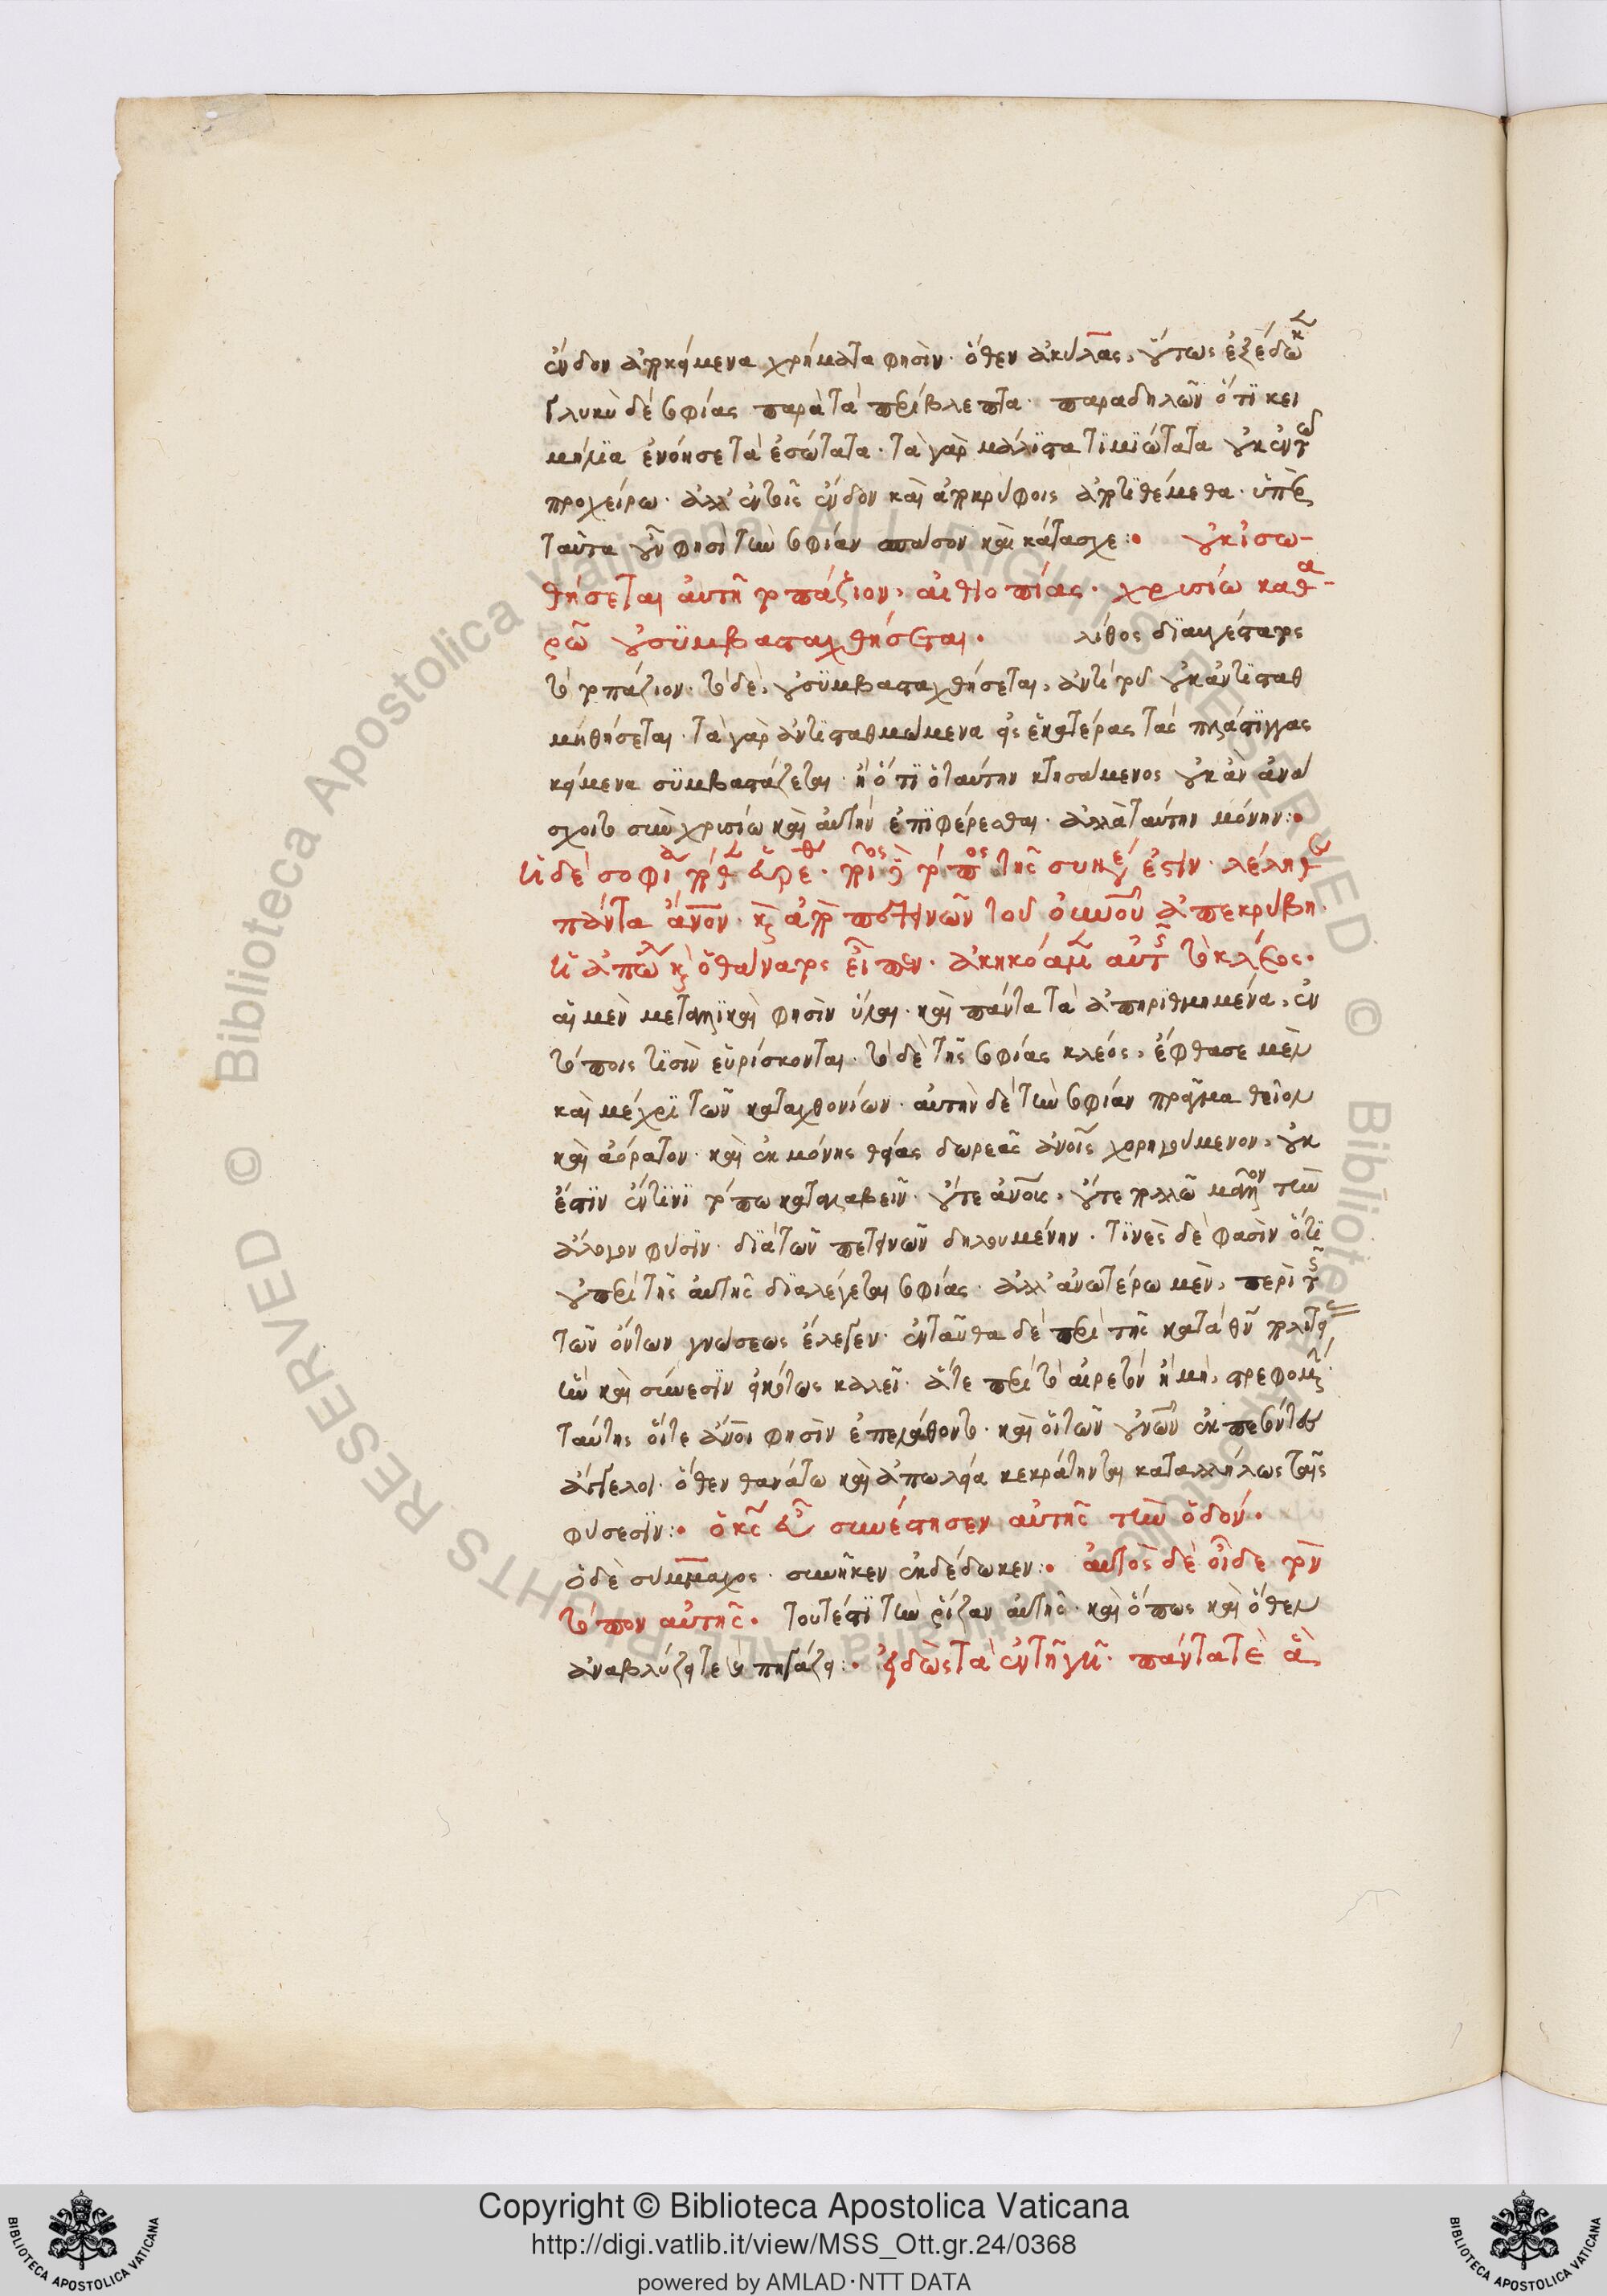 ἔνδον ἀποκείμενα χρήματα φησίν· ὅθεν ἀκύλας, οὕτως ἐξέδωκ
γλυκὺ δὲ σοφίας παρὰ τὰ περίβλεπτα· παραδηλῶν ὅτι κει
μήλια ἐνόησε τὰ ἐσώτατα· τὰ γὰρ μάλιστα τιμιώτατα οὐκ ἐν τῶ
προχείρω· ἀλλ' ἐν τοῖς ἔνδον καὶ ἀποκρύφοις ἀποτιθέμεθα· ὑπὲρ
ταῦτα οὖν φησὶ τὴν σοφίαν σπάσον καὶ κάτασχε:· οὐκ ἰσω-
θήσεται αὐτῆ τοπάζιον, αἰθιοπίας· χρυσίω καθα-
ρῶ οὐ συμβασταχθήσεται· λίθος διαυγέστατος
τὸ τοπάζιον· τὸ δὲ, οὐ συμβασταχθήσεται, ἀντὶ τοῦ οὐκ ἀντισταθ
μηθήσεται· τὰ γὰρ ἀντισταθμώμενα εἰς ἑκατέρας τὰς πλάστιγγας
κείμενα συμβαστάζεται· ἢ ὅτι ὁ ταύτην κτησάμενος οὐκ ἂν ἀνά
σχοιτο σὺν χρυσίω καὶ αὐτὴν ἐπιφέρεσθαι· ἀλλὰ ταύτην μόνην:·
ἡ δὲ σοφία πόθεν εὑρέθη· ποῖος δὲ τόπος τῆς συνέσεώς ἐστιν· λέληθε
πάντα ἄνον· καὶ ἀπὸ πετεινῶν τοῦ οὐνοῦ ἀπεκρύβη·
ἡ ἀπώλεια καὶ ὁ θάνατος εἶπεν· ἀκηκόαμεν αὐτῆς τὸ κλέος·
αἱ μὲν μεταλλικαὶ φησὶν ὗλαι· καὶ πάντα τὰ ἀπηριθμημένα, ἐν
τόποις τισὶν εὑρίσκονται· τὸ δὲ τῆς σοφίας κλέος, ἔφθασε μὲν
καὶ μέχρι τῶν καταχθονίων· αὐτὴν δὲ τὴν σοφίαν πρᾶγμα θεῖον
καὶ ἀόρατον· καὶ ἐκ μόνης θείας δωρεᾶς ἀνοῖς χορηγούμενον, οὐκ
ἔστιν ἔν τινι τόπω καταλαβεῖν· οὔτε ἀνοις, οὔτε πολλῶ μᾶλλον τὴν
ἄλογον φύσιν· διὰ τῶν πετεινῶν δηλουμένην· τινὲς δὲ φασὶν ὅτι
οὐ περὶ τῆς αὐτῆς διαλέγεται σοφίας· ἀλλ' ἀνωτέρω μὲν, περὶ τῆς
τῶν ὄντων γνώσεως ἔλεγεν· ἐνταῦθα δὲ περὶ τῆς κατὰ θν πολιτεί
ἣν καὶ σύνεσιν εἰκότως καλεῖ· ἅτε περὶ τὸ αἱρετὸν ἢ μὴ, στρεφομένης·
ταύτης οἵ τε ἄνοι φησὶν ἐπελάθοντο· καὶ οἱ τῶν οὐνῶν ἐκπεσόντες
ἄγγελοι· ὅθεν θανάτω καὶ ἀπωλεία κεκράτηνται καταλλήλως ταῖς
φύσεσιν:· ὁ κς εὖ συνέστησεν αὐτῆς τὴν ὁδόν·
ὁ δὲ σύμμαχος· συνῆκεν ἐκδέδωκεν:· αὐτὸς δὲ οἶδε τὸν
τόπον αὐτῆς· τουτέστι τὴν ῥίζαν αὐτῆς· καὶ ὅπως καὶ ὅθεν
ἀναβλύζει τὲ καὶ πηγάζει:· εἰδὼς τὰ ἐν τῆ γῆ· πάντα τὲ ἃ
Copyright © Biblioteca Apostolica Vaticana
http://digi.vatlib.it/view/MSS_Ott.gr.24/0368
powered by AMLAD·NTT DATA